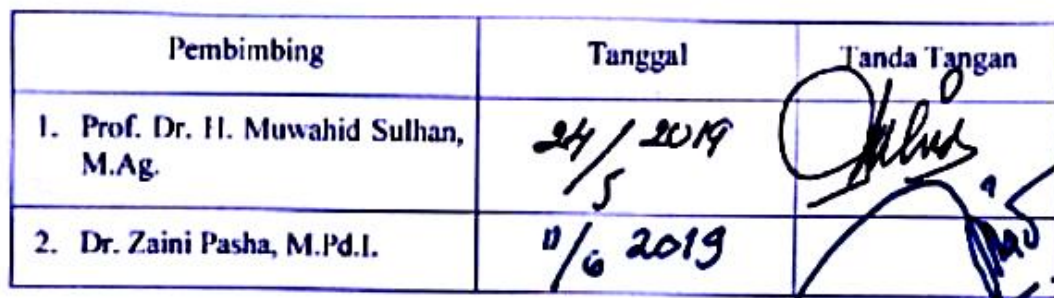 Pembimbing Tanggal Tanda Tangan
1. Prof. Dr. H. Muwahid Sulhan, 24/5 2019
M.Ag.
2. Dr. Zaini Pasha, M.Pd.I. 11/6 2019